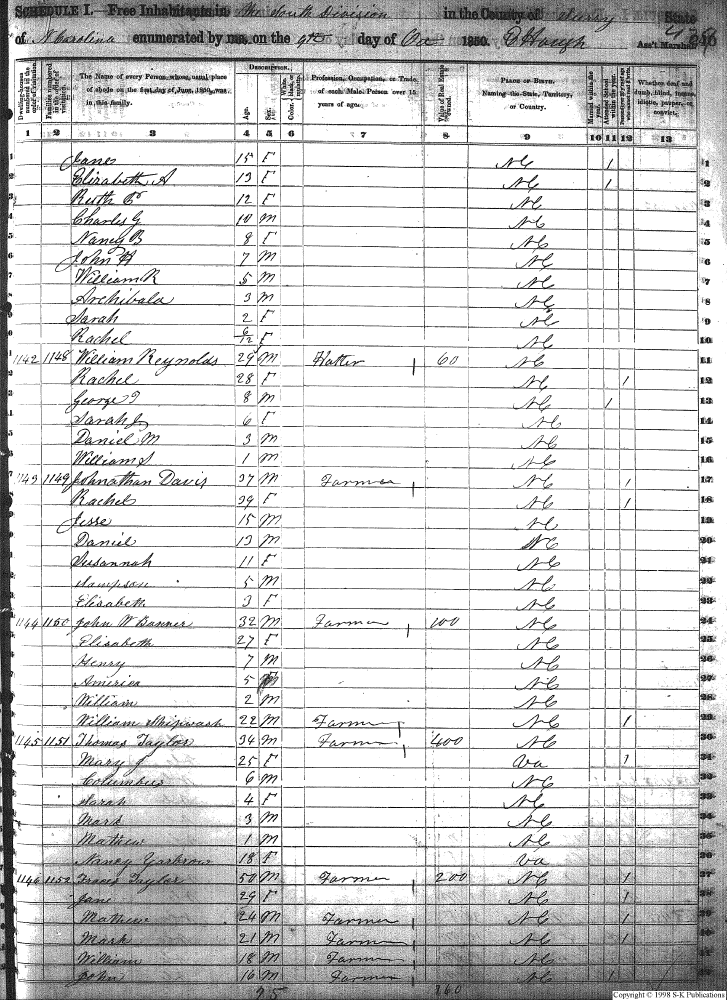 SCHEDULE I. Free Inhabitants in The South Division in the County of Surry State
of N Carolina enumerated by me, on the 9th day of Oct 1850. Ass't Marshal
Dwelling-houses numbered in the order of visitation.
Families numbered in the order of visitation.
The Name of every Person whose usual place of abode on the first day of June, 1850, was in this family.
DESCRIPTION.
Age.
Sex.
Color, White, black, or mulatto.
Profession, Occupation, or Trade of each Male Person over 15 years of age.
Value of Real Estate owned.
PLACE OF BIRTH. Naming the State, Territory, or Country.
Married within the year.
Attended School within the year.
Whether deaf and dumb, blind, insane, idiotic, pauper, or convict.
1 2 3 4 5 6 7 8 9 10 11 12 13
1 James 15 F NC 1 1
2 Elizabeth A 13 F NC 1 2
3 Ruth E 12 F NC 3
4 Charles G 10 M NC 4
5 Nancy B 8 F NC 5
6 John H 7 M NC 6
7 William R 5 M NC 7
8 Archibald 3 M NC 8
9 Sarah 2 F NC 9
10 Rachel 6/12 F NC 10
1142 1148 William Reynolds 29 M Hatter 60 NC 11
Rachel 28 F NC 1 12
George 8 M NC 1 13
Sarah J 6 F NC 14
Daniel M 3 M NC 15
William S 1 M NC 16
1143 1149 Johnathan Davis 37 M Farmer NC 1 17
Rachel 39 F NC 1 18
Jesse 15 M NC 19
Daniel 13 M NC 20
Susannah 11 F NC 21
Sampson 5 M NC 22
Elisabeth 3 F NC 23
1144 1150 John W Banner 32 M Farmer 100 NC 24
Elisabeth 27 F NC 25
Henry 7 M NC 26
America 5 F NC 27
William 2 M NC 28
William Shipwash 22 M Farmer NC 1 29
1145 1151 Thomas Taylor 34 M Farmer 400 NC 30
Mary J 25 F Va 1 31
Columbus 6 M NC 32
Sarah 4 F NC 33
Mark 3 M NC 34
Mathew 1 M NC 35
Nancy 18 F Va 36
1146 1152 Taylor 50 M Farmer 200 NC 1 37
Jane 29 F NC 1 38
Mathew 24 M Farmer NC 1 39
Mark 21 M Farmer NC 1 40
William 18 M Farmer NC
John 16 M Farmer NC
Copyright © 1998 S-K Publications